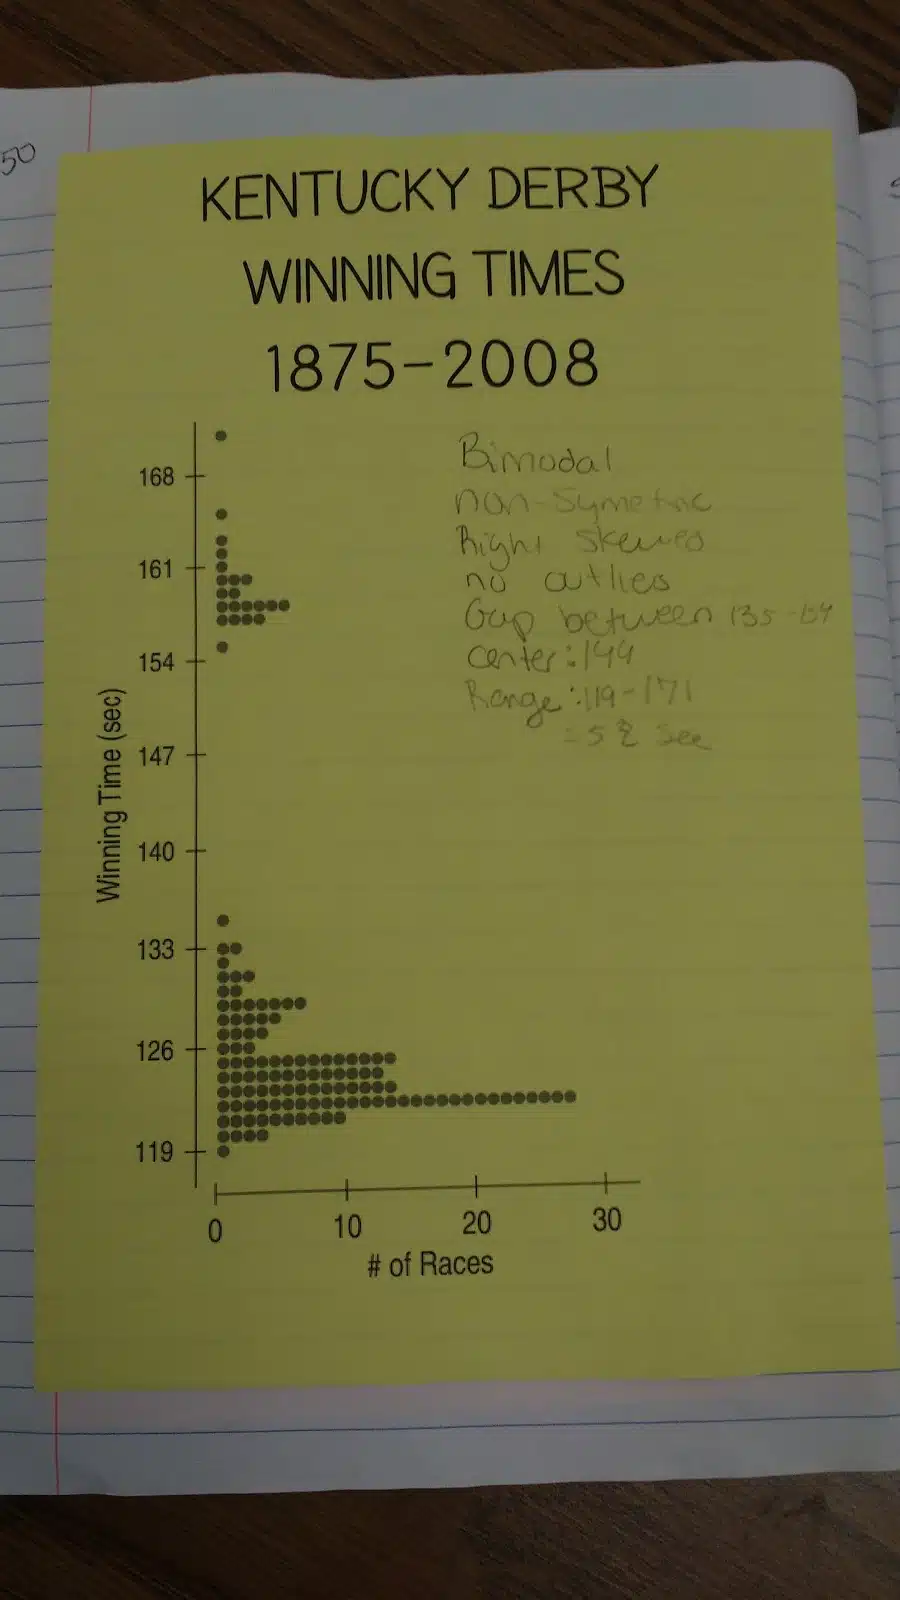 50
KENTUCKY DERBY
WINNING TIMES
1875-2008
Bimodal
non-Symetric
Right Skewed
no outlies
Gap between 135-154
Center: 144
Range: 119-171
= 52 Sec
168
161
154
147
140
133
126
119
Winning Time (sec)
0 10 20 30
# of Races